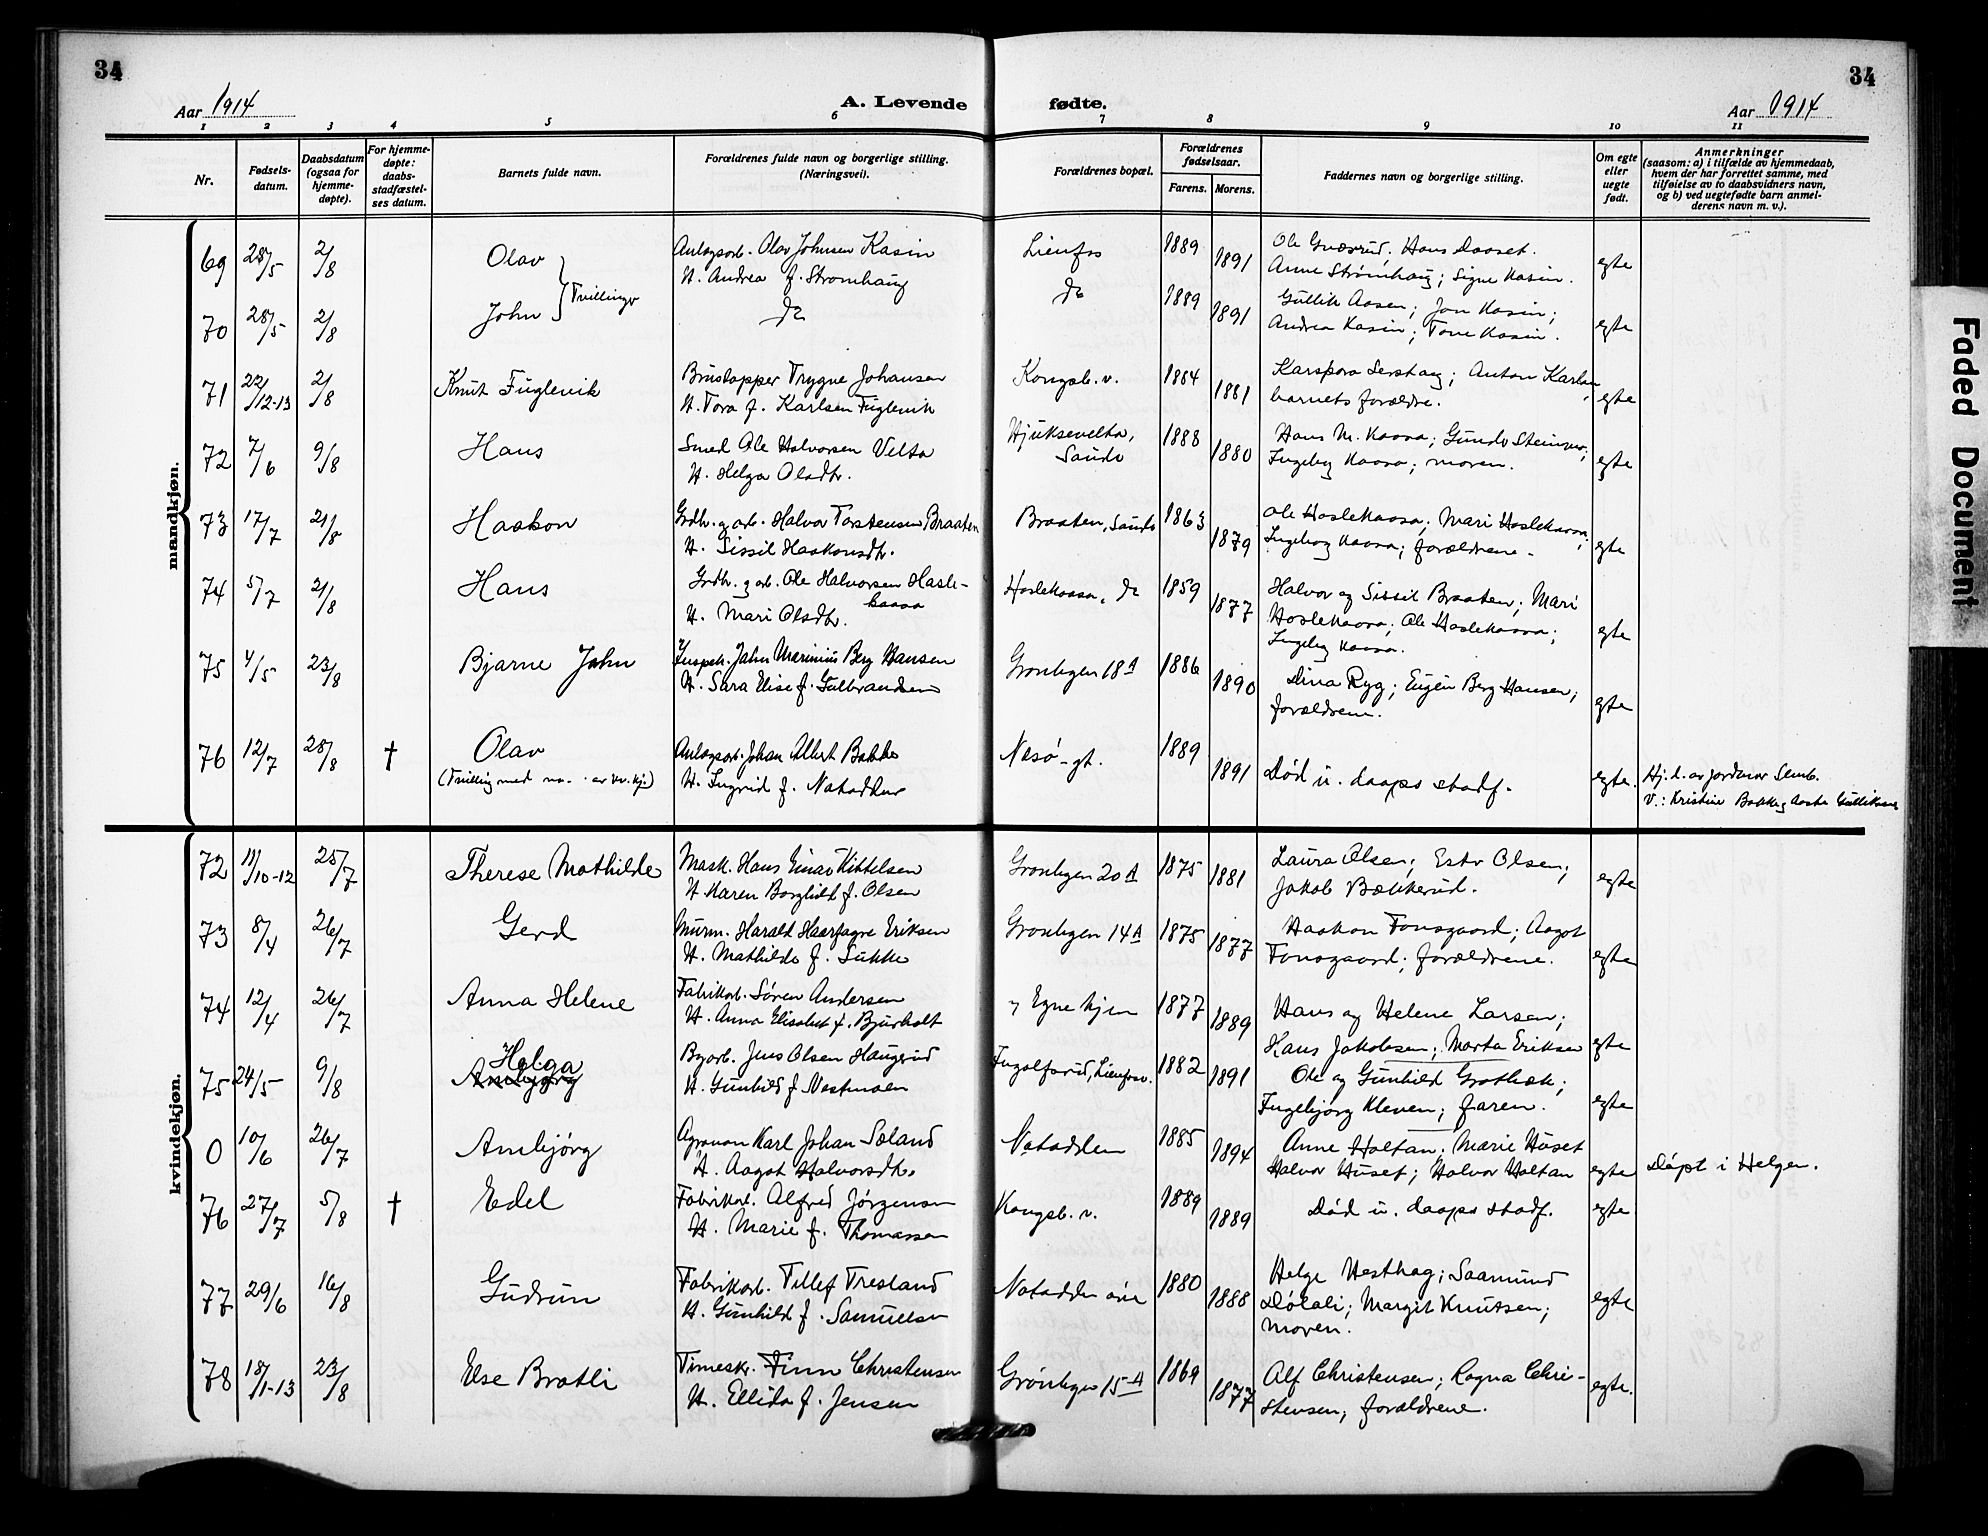 34
34
Aar 1914
A. Levende fødte.
Aar 1914
1 2 3 4 5 6 7 8 9 10 11
Nr.
Fødsels-
datum.
Daabsdatum
(ogsaa for
hjemme-
døpte).
For hjemme-
døpte:
daabs-
stadfæstel-
ses datum.
Barnets fulde navn.
Forældrenes fulde navn og borgerlige stilling.
(Næringsvei).
Forældrenes bopæl.
Forældrenes
fødselsaar.
Farens. Morens.
Faddernes navn og borgerlige stilling.
Om egte
eller
uegte
født.
Anmerkninger
(saasom: a) i tilfælde av hjemmedaab,
hvem der har forrettet samme, med
tilføielse av to daabsvidners navn,
og b) ved uegtefødte barn anmel-
derens navn m. v.).
mandkjøn.
69 28/5 2/8 Olav Anlægsarb. Olav Johnsen Kasin Lienfos 1889 1891 Ole Gvæsrud; Hans Daaset.
H. Andrea f. Strømhaug Anne Strømhaug; Signe Kasin. egte
Tvillinger
70 28/5 2/8 John do do 1889 1891 Gullik Aasen; Jon Kasin;
Andrea Kasin; Tone Kasin. egte
71 22/12-13 2/8 Knut Fuglevik Brustapper Trygve Johansen Kongsb. v. 1884 1881 Anton Karlsen
H. Tora f. Karlsen Fuglevik barnets forældre. egte
72 7/6 9/8 Hans Smed Ole Halvorsen Velta Hjuksevelta, 1888 1880 Hans M. Kaasa;
H. Helga Olsdtr. Saude Ingebg Kaasa; moren. egte
73 17/7 21/8 Haakon Grdbr. og arb. Halvor Torstensen Braaten Braaten, Saude 1863 1879 Ole Haslekaasa; Mari Haslekaasa;
H. Sissil Haakonsdtr. Ingeborg Kaasa; forældrene. egte
74 5/7 21/8 Hans Grdbr. og arb. Ole Halvorsen Hasle-
kaasa Haslekaasa, do 1859 1877 Halvor og Sissil Braaten; Mari
H. Mari Olsdtr. Haslekaasa; Ole Haslekaasa; egte
Ingebg Kaasa.
75 4/5 23/8 Bjarne John Inspek. John Marinius Berg Hansen Grønbyen 18 A 1886 1890 Dina Ryg; Eugen Berg Hansen;
H. Sara Elise f. Gulbrandsen forældrene. egte
76 12/7 28/8 † Olav Anlægsarb. Johan Albert Bakke Nesø-gt. 1889 1891 Død u. daaps stadf. egte. Hj. d. av jordmor Semb.
(Tvilling med no. . av kv. kj.) H. Ingrid f. Notodden V.: Kristine Bakke og Aaste Gulliksen
kvindekjøn.
72 11/10-12 25/7 Therese Mathilde Mask. Hans Einar Kittelsen Grønbyen 20 A 1875 1881 Laura Olsen; Ester Olsen;
H. Karen Borghild f. Olsen Jakob Bækkerud. egte
73 8/4 26/7 Gerd Murm. Harald Haarfagre Eriksen Grønbyen 14 A 1875 1877 Haakon Fonsgaard; Aagot
H. Mathilde f. Sukke Fonsgaard; forældrene. egte
74 12/4 26/7 Anna Helene Fabrikarb. Søren Andersen Egne hjem 1877 1889 Hans og Helene Larsen;
H. Anna Elisabet f. Bjurholt Hans Jakobsen; Marta Eriksen egte
75 24/5 9/8 Helga
Ambjørg Byarb. Jens Olsen Haugerud Ingolfsrud, Lienfosv. 1882 1891 Ole og Gunhild Grotbæk;
H. Gunhild f. Vestmoen Ingebjørg Kleven; faren. egte
0 10/6 26/7 Ambjørg Agronom Karl Johan Soland Notodden 1885 1894 Anne Holtan; Marie Huset
H. Aagot Halvorsdtr. Halvor Huset; Halvor Holtan egte Døpt i Helgen.
76 27/7 5/8 † Edel Fabrikarb. Alfred Jørgensen Kongsb. v. 1889 1889 Død u. daaps stadf. egte
H. Marie f. Thomassen
77 29/6 16/8 Gudrun Fabrikarb. Tellef Tresland Notodden øvre 1880 1888 Helge Vesthag; Saamund
H. Gunhild f. Samuelsen Dølali; Margit Knutsen; egte
Moren.
78 18/1-13 23/8 Else Bratli Timeskr. Finn Christensen Grønbyen 15 A 1869 1877 Alf Christensen; Ragna Chri-
H. Ellida f. Jensen stensen; forældrene. egte.
Faded Document